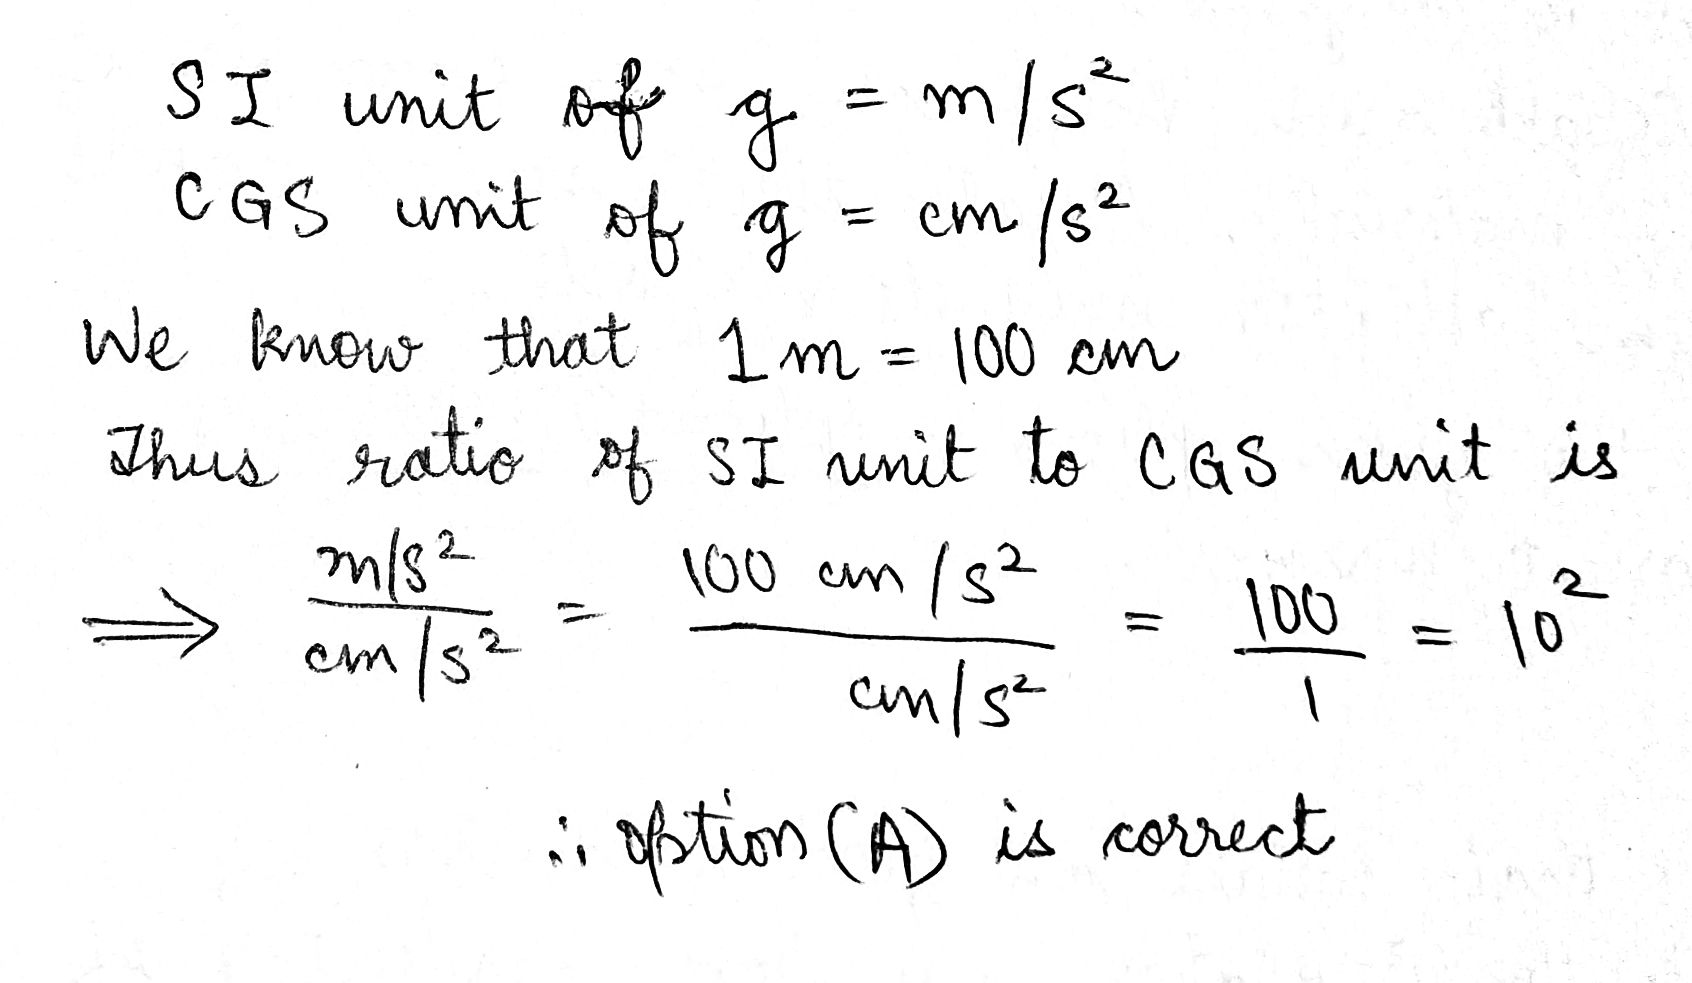 SI unit of g = m/s²
CGS unit of g = cm/s²
We know that 1 m = 100 cm
Thus ratio of SI unit to CGS unit is
⟹ (m/s²)/(cm/s²) = (100 cm/s²)/(cm/s²) = 100/1 = 10²
∴ option (A) is correct